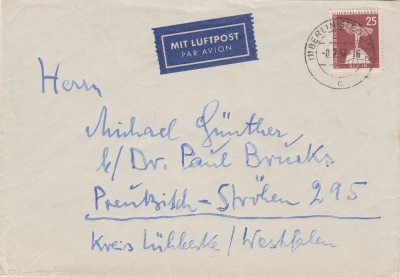 MIT LUFTPOST
PAR AVION
BERLIN
25
BERLIN
c
Herrn
Michael Günther
b/Dr. Paul Brucks
Preußisch-Ströhen 295
Kreis Lübbecke/Westfalen